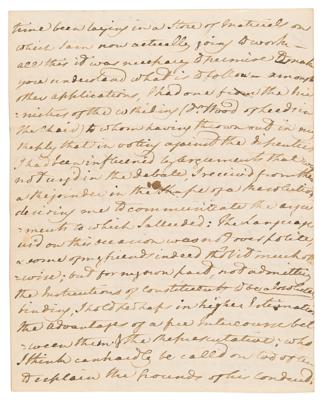 time been laying in a Store of Materials on
which I am now actually going to work —
all this it was necessary to premise to make
you understand what is to follow — among
other applications, I had one from the
of the (Dr Wood of Leeds in
the Chair) to whom having thrown out in my
reply that in voting against the
I had been influenced by arguments that were
not urged in the debate, I received from them
a Rejoinder in the shape of a Resolution
desiring me to communicate the argu-
ments to which I alluded: The Language
used on this occasion was not over polite,
& some of my friends indeed
wise; but for my own part, not admitting
the Instructions of Constituents to be absolutely
binding, I hold perhaps in higher Estimation
the advantages of a free intercourse bet-
ween them & the Representative; who
I think can hardly be called on too often
to explain the Grounds of his conduct.